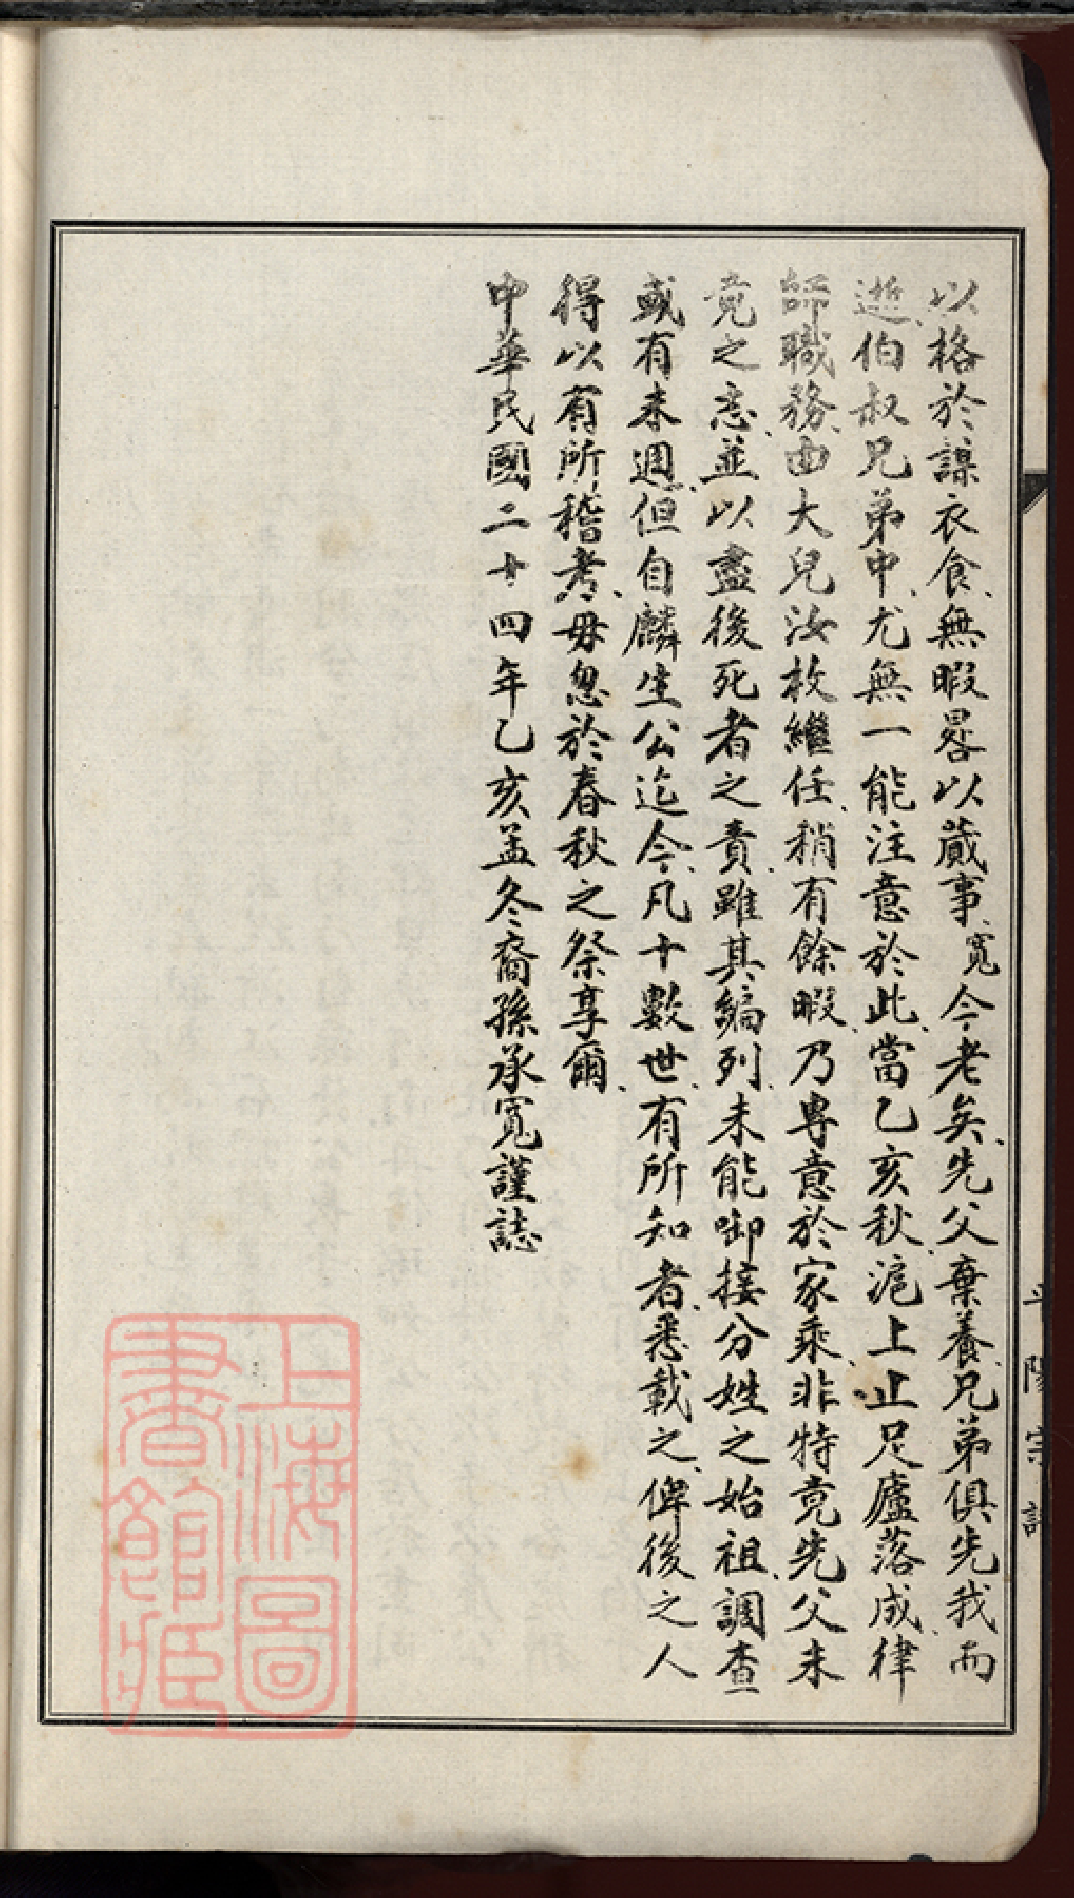 以格於謀衣食、無暇畧以蕆事、寬今老矣、先父棄養、兄弟俱先我而
逝、伯叔兄弟中、尤無一能注意於此、當乙亥秋、滬上止足廬落成、律
師職務、由大兒汝枚繼任、稍有餘暇、乃專意於家乘、非特竟先父未
竟之志、並以盡後死者之責、雖其編列、未能啣接分姓之始祖、調查
或有未週、但自麟生公迄今、凡十數世、有所知者、悉載之、俾後之人
得以有所稽考、毋忽於春秋之祭享爾、
中華民國二十四年乙亥孟冬裔孫承寬謹誌
上海圖
書館藏